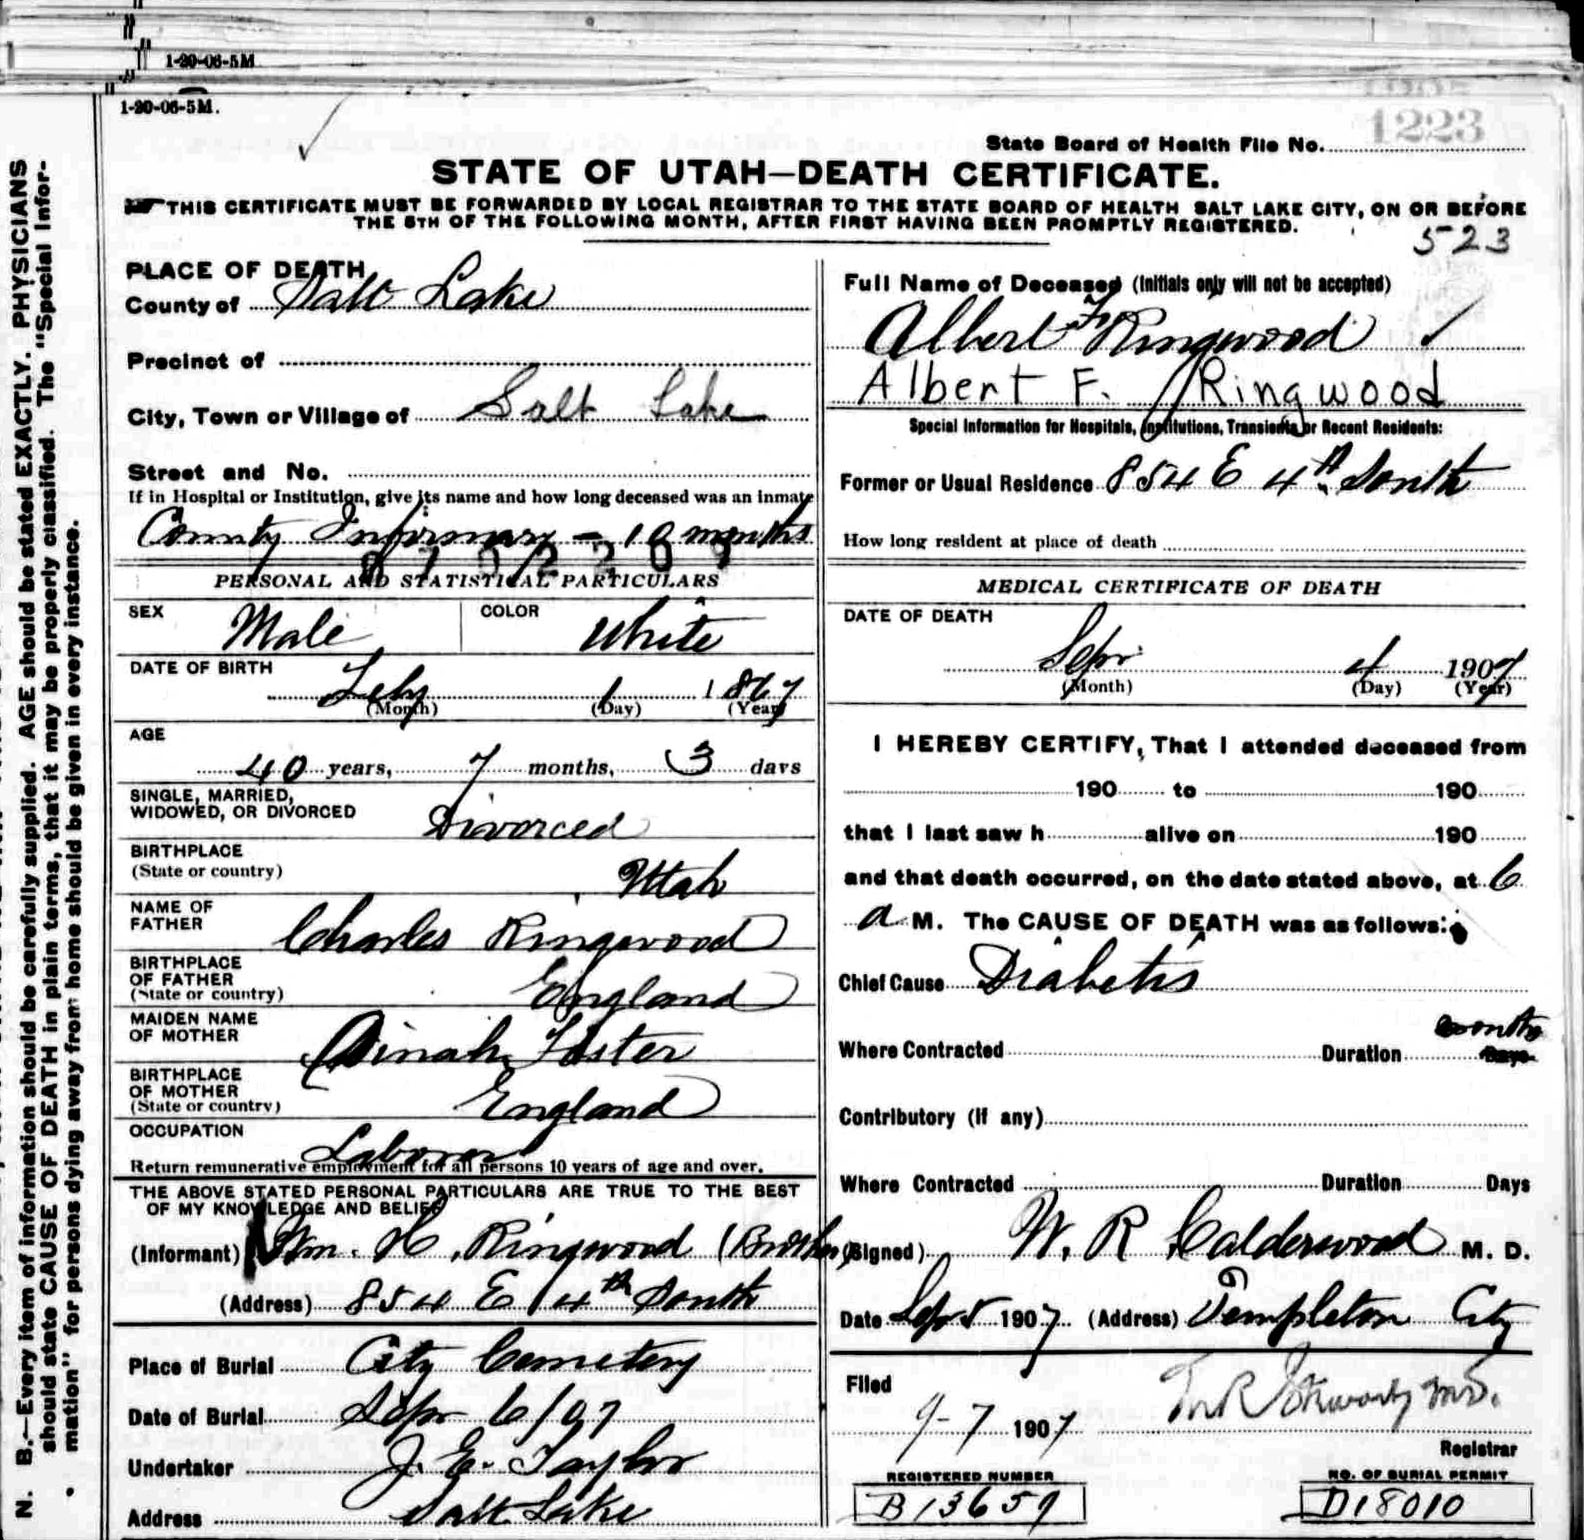 1-20-06-5M
1-20-06-5M.
1223
State Board of Health File No.
STATE OF UTAH—DEATH CERTIFICATE.
THIS CERTIFICATE MUST BE FORWARDED BY LOCAL REGISTRAR TO THE STATE BOARD OF HEALTH SALT LAKE CITY, ON OR BEFORE
THE 5TH OF THE FOLLOWING MONTH, AFTER FIRST HAVING BEEN PROMPTLY REGISTERED.
523
N. B.—Every item of information should be carefully supplied. AGE should be stated EXACTLY. PHYSICIANS
should state CAUSE OF DEATH in plain terms, that it may be properly classified. The "Special Infor-
mation" for persons dying away from home should be given in every instance.
PLACE OF DEATH
County of Salt Lake
Precinct of
City, Town or Village of Salt Lake
Street and No.
If in Hospital or Institution, give its name and how long deceased was an inmate
County Infirmary - 10 months
PERSONAL AND STATISTICAL PARTICULARS
SEX Male COLOR White
DATE OF BIRTH
Feby 1 1867
(Month) (Day) (Year)
AGE
40 years, 7 months, 3 days
SINGLE, MARRIED,
WIDOWED, OR DIVORCED Divorced
BIRTHPLACE
(State or country) Utah
NAME OF
FATHER Charles Ringwood
BIRTHPLACE
OF FATHER
(State or country) England
MAIDEN NAME
OF MOTHER Dinah Foster
BIRTHPLACE
OF MOTHER
(State or country) England
OCCUPATION Laborer
Return remunerative employment for all persons 10 years of age and over.
THE ABOVE STATED PERSONAL PARTICULARS ARE TRUE TO THE BEST
OF MY KNOWLEDGE AND BELIEF
(Informant) Wm. H. Ringwood (Brother)
(Address) 854 E 4th South
Place of Burial City Cemetery
Date of Burial Sepr 6/07
Undertaker J. E. Taylor
Address Salt Lake
Full Name of Deceased (Initials only will not be accepted)
Albert F. Ringwood
Albert F. Ringwood
Special Information for Hospitals, Institutions, Transients or Recent Residents:
Former or Usual Residence 854 E 4th South
How long resident at place of death
MEDICAL CERTIFICATE OF DEATH
DATE OF DEATH
Sepr 4 1907
(Month) (Day) (Year)
I HEREBY CERTIFY, That I attended deceased from
190 to 190
that I last saw h alive on 190
and that death occurred, on the date stated above, at 6
a M. The CAUSE OF DEATH was as follows:
Chief Cause Diabetis
months
Where Contracted Duration Days
Contributory (if any)
Where Contracted Duration Days
(Signed) W. R Calderwood M. D.
Date Sep 5 1907 (Address) Templeton City
Filed
9-7 1907
Registrar
REGISTERED NUMBER
B13659
NO. OF BURIAL PERMIT
D18010